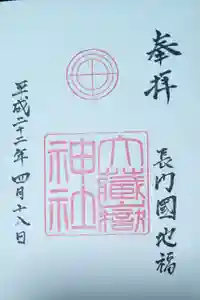 奉拝
長門國地福
大藏嶽
神社
平成二十二年 四月十八日